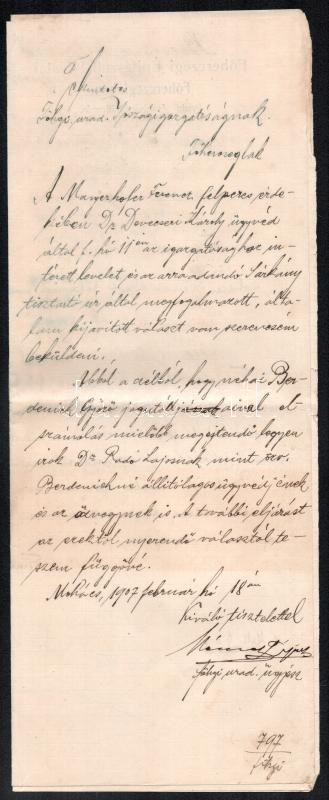 Főhgi. urad. Jószágigazgatóságnak.
Főherczeglak
A Mayerhoffer Ferencz felperes érde-
kében Dr Devecseri Károly ügyvéd
által f. hó 11 én az igazgatósághoz in-
tézett levelet és az arra adandó Sárkány
tisztartó úr által megfogalmazott, álta-
lam kijavított választ van szerencsém
beküldeni.
Abból a célból, hogy néhai Ber-
denich Győző jogutódjával el-
számolás mielőbb megejtendő legyen
irok Dr Radó Lajosnak mint özv.
Berdenichné állitólagos ügyvédjének
és az özvegynek is. A további eljárást
az ezektől nyerendő választól te-
szem függővé.
Mohács, 1907 február hó 18 án
Kiváló tisztelettel
főhgi. urad. ügyész
797